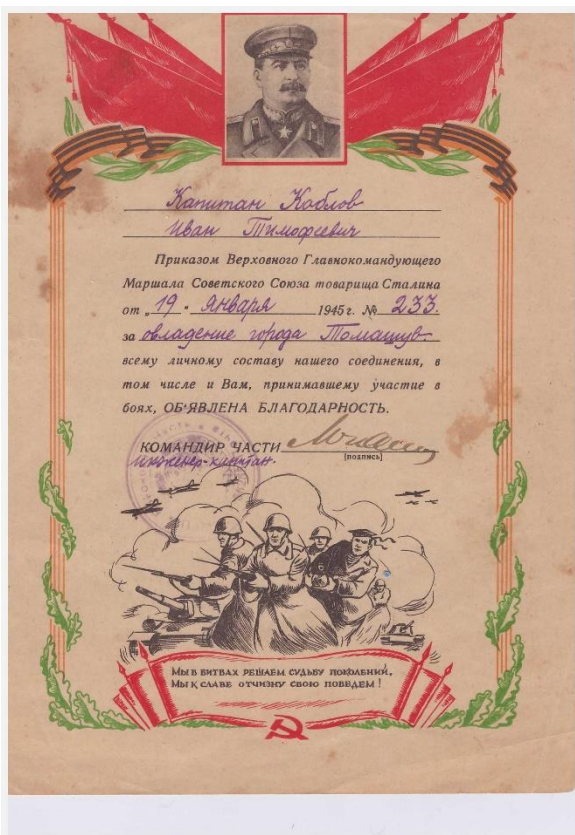 Капитан Коблов
Иван Тимофеевич
Приказом Верховного Главнокомандующего
Маршала Советского Союза товарища Сталина
от „19" Января 1945 г. № 233.
за овладение города Томашув.
всему личному составу нашего соединения, в
том числе и Вам, принимавшему участие в
боях, ОБ'ЯВЛЕНА БЛАГОДАРНОСТЬ.
КОМАНДИР ЧАСТИ
(подпись)
инженер-капитан.
МЫ В БИТВАХ РЕШАЕМ СУДЬБУ ПОКОЛЕНИЙ,
МЫ К СЛАВЕ ОТЧИЗНУ СВОЮ ПОВЕДЕМ!